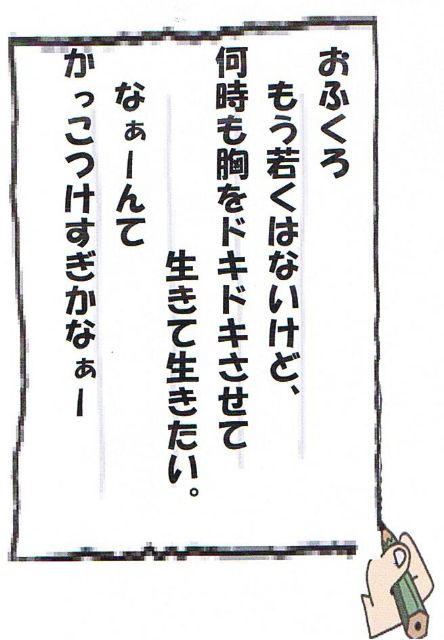 おふくろ
もう若くはないけど、
何時も胸をドキドキさせて
生きて生きたい。
なぁーんて
かっこつけすぎかなぁー